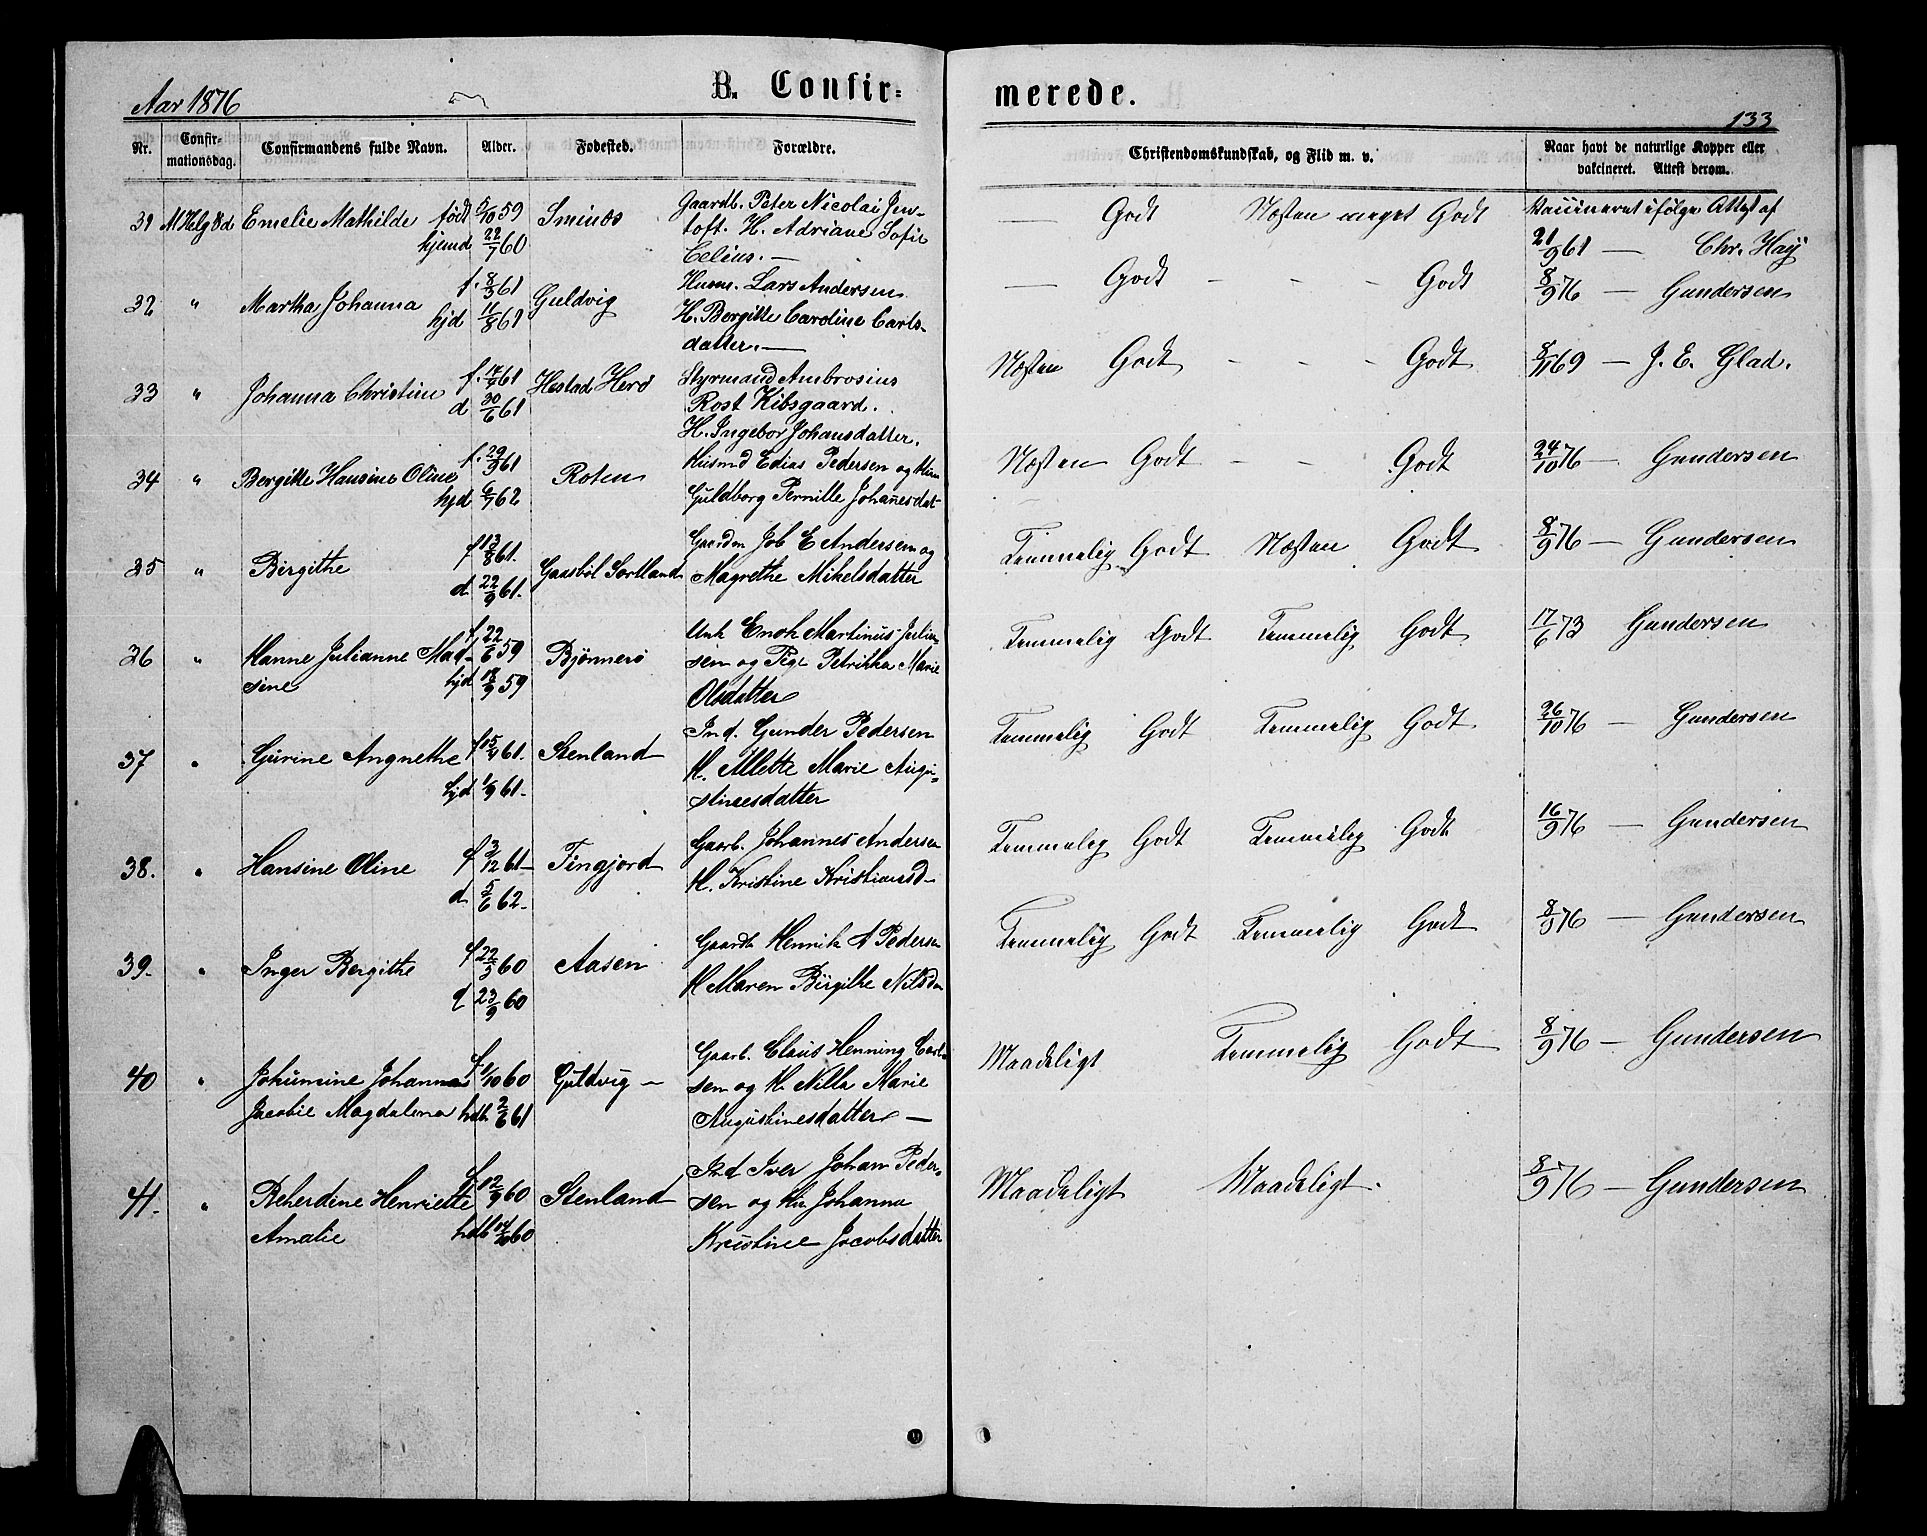 Aar 1876
B. Confir-
merede.
133
Nr. Confir-mationsdag. Confirmandens fulde Navn. Alder. Fødested. Forældre. Christendomskundskab, og Flid m. v. Naar havt de naturlige Kopper eller vakcineret. Attest derom.
31 Emelie Mathilde født 5/10 59 Gaardb. Peter Nicolai Jen- — Godt Næsten meget Godt ifølge Attest af
hjemd 22/7 60 toft. H. Adriane Sofie 21/9 61 — Chr.
Celius. —
32 " Martha Johanna f. 8/3 61 Guldvig Husm. Lars Andersen — Godt - - - Godt 8/9 76 — Gundersen
hjd 11/8 61 H. Bergitte Caroline Carls-
datter. —
33 " Johanna Christine f. 61 Hestad Herø Styrmand Ambrosius Næsten Godt - - Godt 69 — J. E. Glad.
d 30/6 61 Rost Kibsgaard.
H. Ingebor Johansdatter.
34 " Bergitte Hansine Oline f. 29/9 61 Roten Husmd Edias Pedersen og Næsten Godt - - Godt 24/10 76 — Gundersen
hjd 6/7 62 Guldborg Pernille Johanesdat
35 " Birgithe f 13/8 61. Gaasbøl Sortland Gaardm Job E Andersen og Temmelig Godt Næsten Godt 8/9 76 — Gundersen
d 22/9 61. Magrethe Mikelsdatter
36 " Hanne Julianne Mad- f. 22/6 59 Bjønnerø Enoh Martinus Julian- Temmelig Godt Temmelig Godt 17/6 73 Gundersen
sine hjd 18/9 59 sen og Pige Petrikka Marie
Olsdatter
37 " Gurine Angnethe f 15/4 61. Stenland Ind. Gunder Pedersen Temmelig Godt Temmelig Godt 26/10 76 — Gundersen
hjd 1/9 61. H. Allette Marie Augu-
stinesdatter
38. " Hansine Oline f 3/12 61 — Tingjord Gaarb. Johannes Andersen Temmelig Godt Temmelig Godt 16/9 76 — Gundersen
d 5/6 62. H. Kristine Kristiansd-
39. " Inger Bergithe f 22/3 60 Aasen Gaardb Henrik A Pedersen Temmelig Godt Temmelig Godt 8/9 76 — Gundersen
d 23/9 60 H Maren Birgithe Nilsd
40 " Johumine Johanna f 1/10 60 Guldvig — Gaarb. Claus Henning Carl- Maadeligt Temmelig Godt 8/9 76 — Gundersen
Jacobie Magdalena hdb 2/6 61 sen og H. Nilla Marie
Augustinesdatter —
41. " Beherdene Henriette f 12/9 60 Stenland Ind Iver Johan Peder- Maadeligt Maadeligt. 8/9 76 — Gundersen
Amalie hdb 60 sen og Johanna
Kristine Jacobsdatter